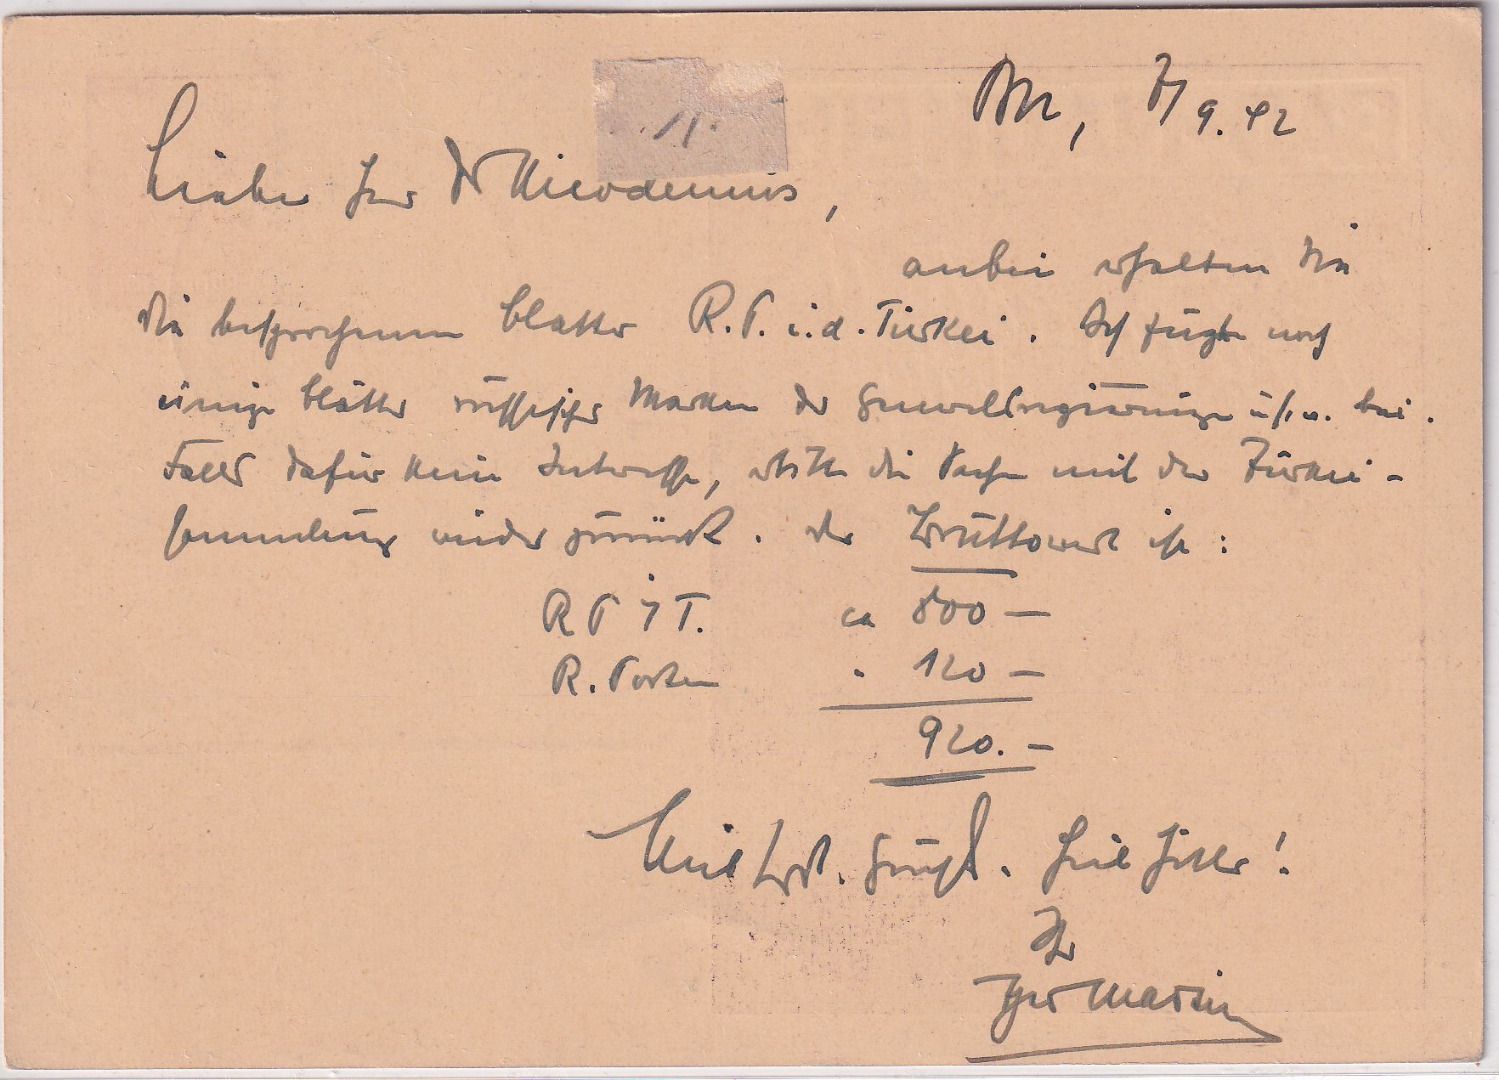 Bln, 7/9.42
11.
Lieber Herr Dr Nicodemus,
anbei erhalten Sie
die besprochenen Blätter R.P. i.d. Türkei. Ich fügte noch
einige Blätter russischer Marken der Gnuvellregierungen u.s.w. bei.
Falls dafür kein Interesse, erbitte die Sache mit der Türkei-
sammlung wieder zurück. Der Bruttowert ist:
R P i T. ca 800 —
R. Posten " 120 —
920. —
Mit hrzl. Gruß. Heil Hitler!
Ihr